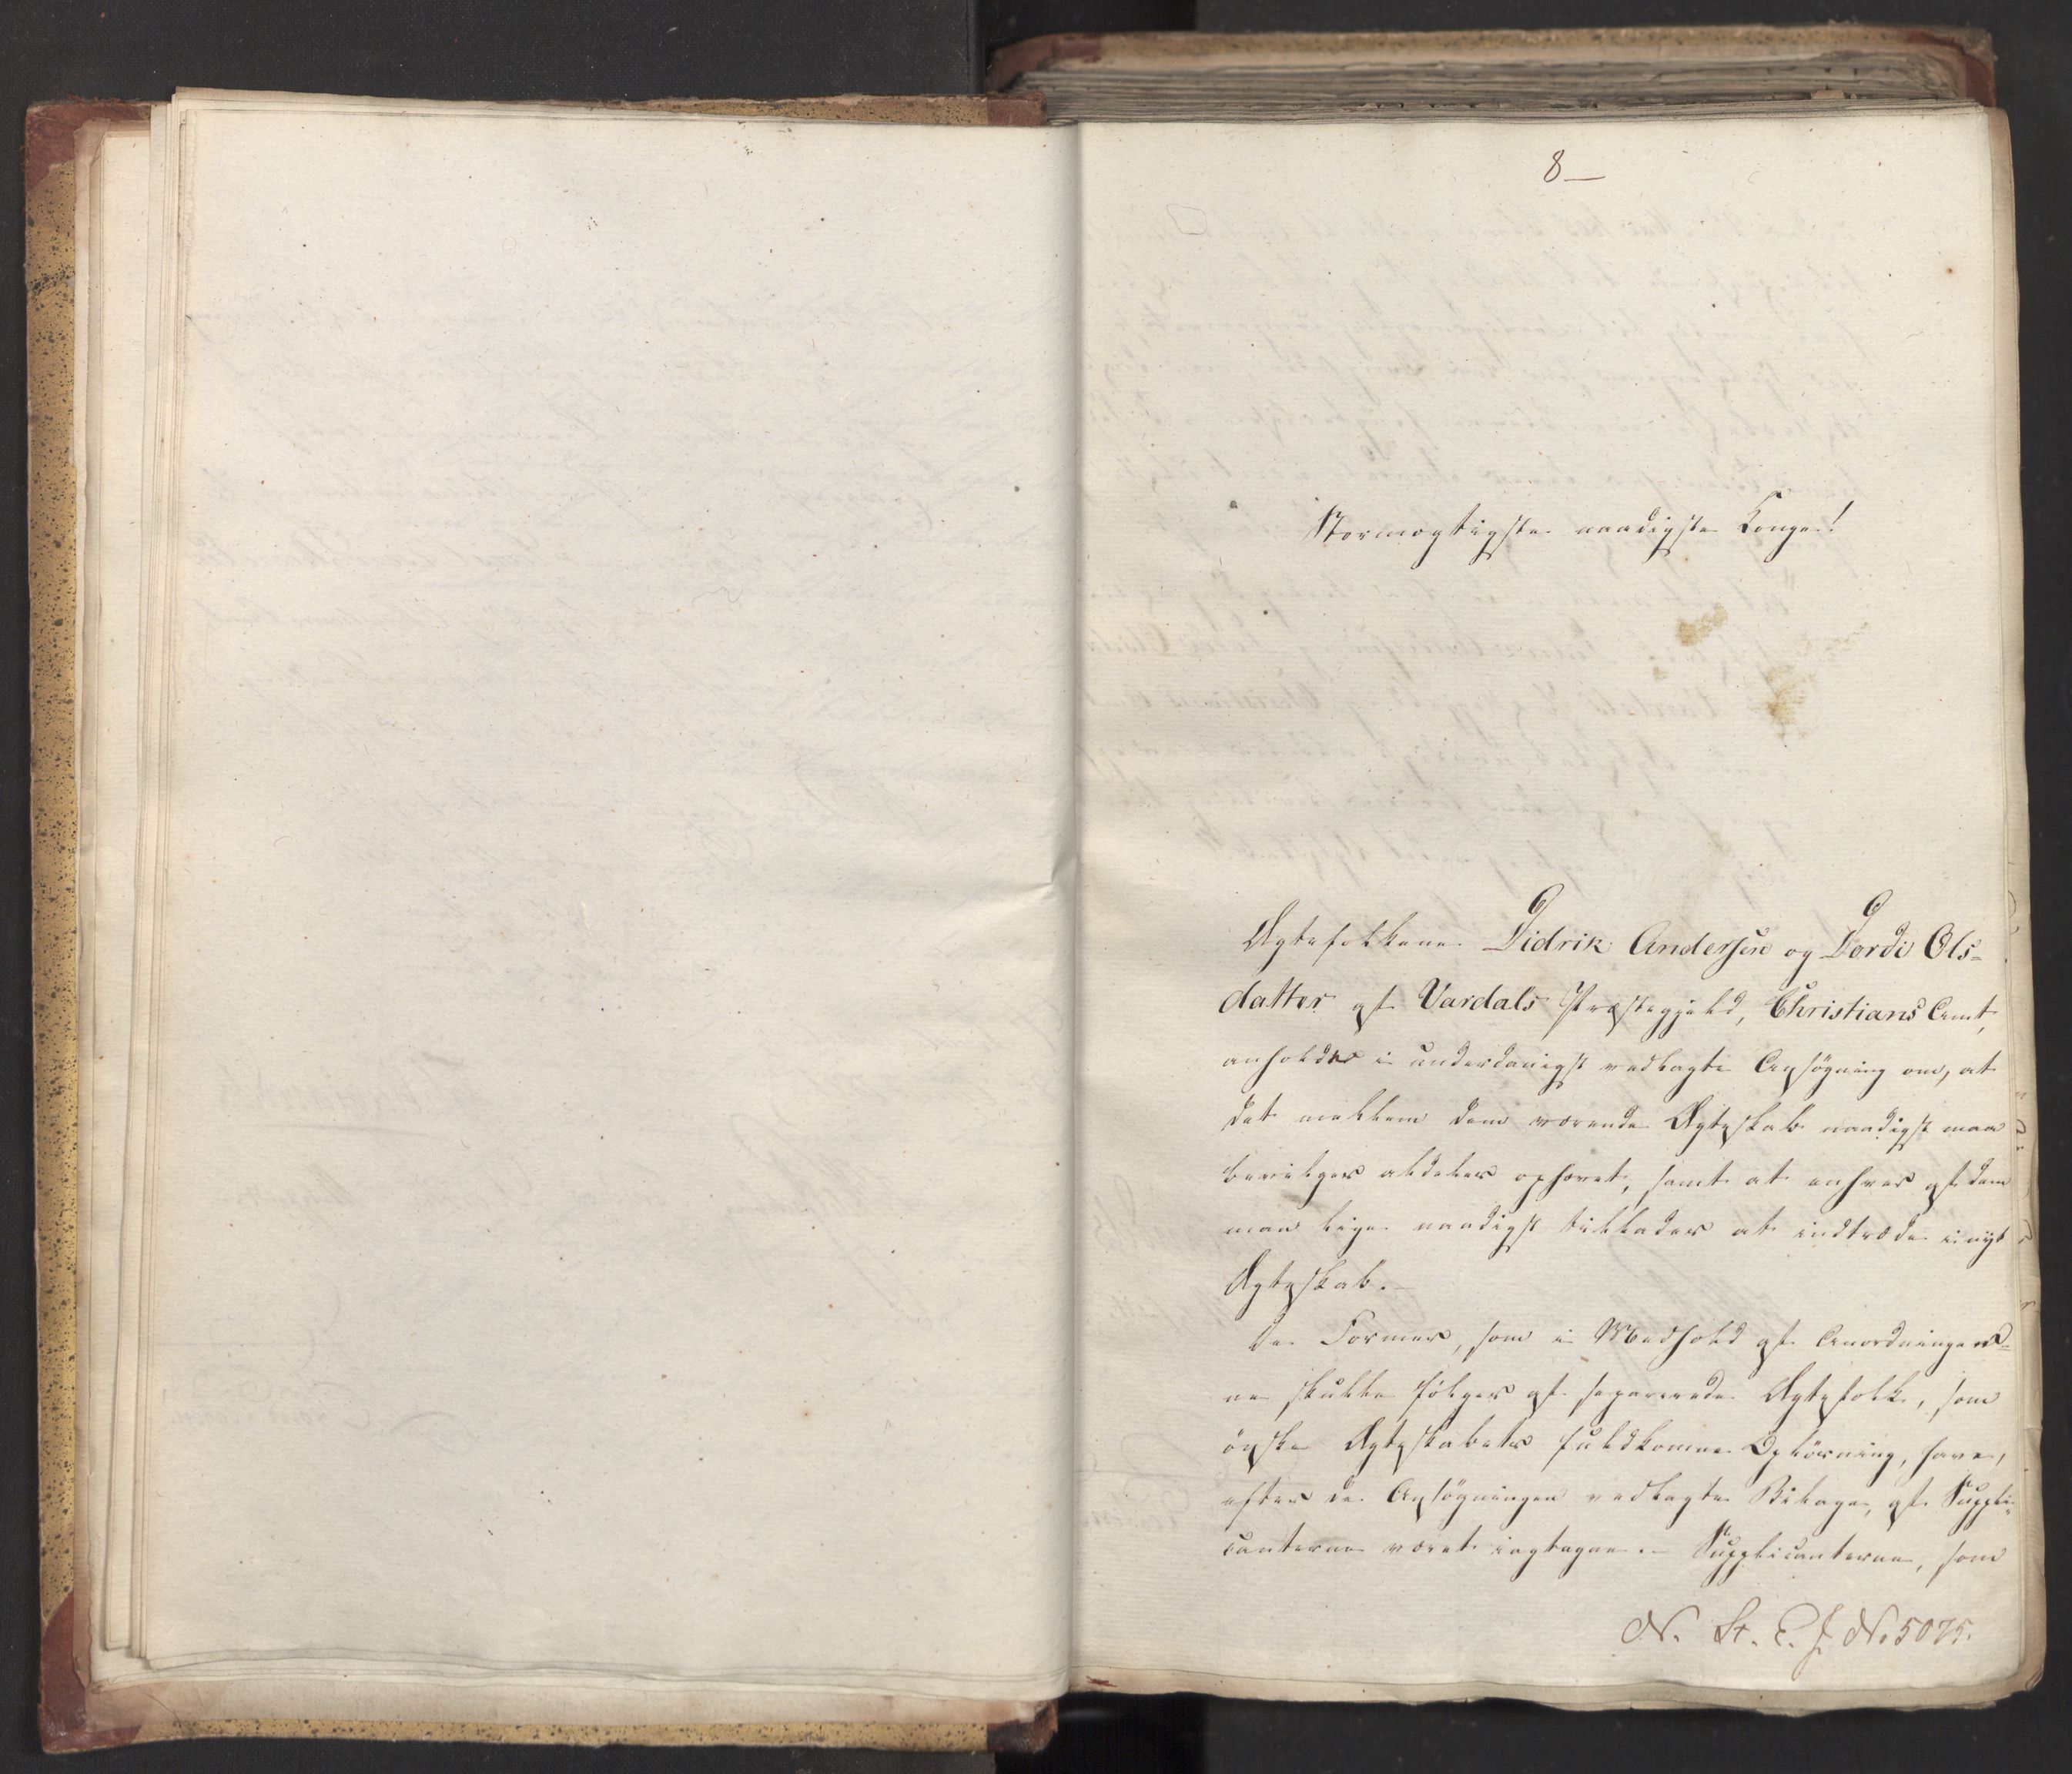 8—
Stormægtigste naadigste Konge!
Ægtefolkene Didrik Andersen og Dordi Ols-
datter af Vardals Præstegjeld, Christians Amt,
anholder i underdanigst vedlagte Ansøgning om, at
det mellem dem værende Ægteskab naadigst maa
bevilges aldeles ophævet, samt at enhver af dem
maa lige naadigst tillades at indtræde i nyt
Ægteskab.—
De Former, som i Medhold af Anordninger-
ne skulle følges af separerede Ægtefolk, som
ønske Ægteskabets fuldkomne Opløsning, have,
efter de Ansøgningen vedlagte Bilage, af Suppli-
canterne været iagtagne.— Supplicanterne, som
N. St. E. J. No 5075.